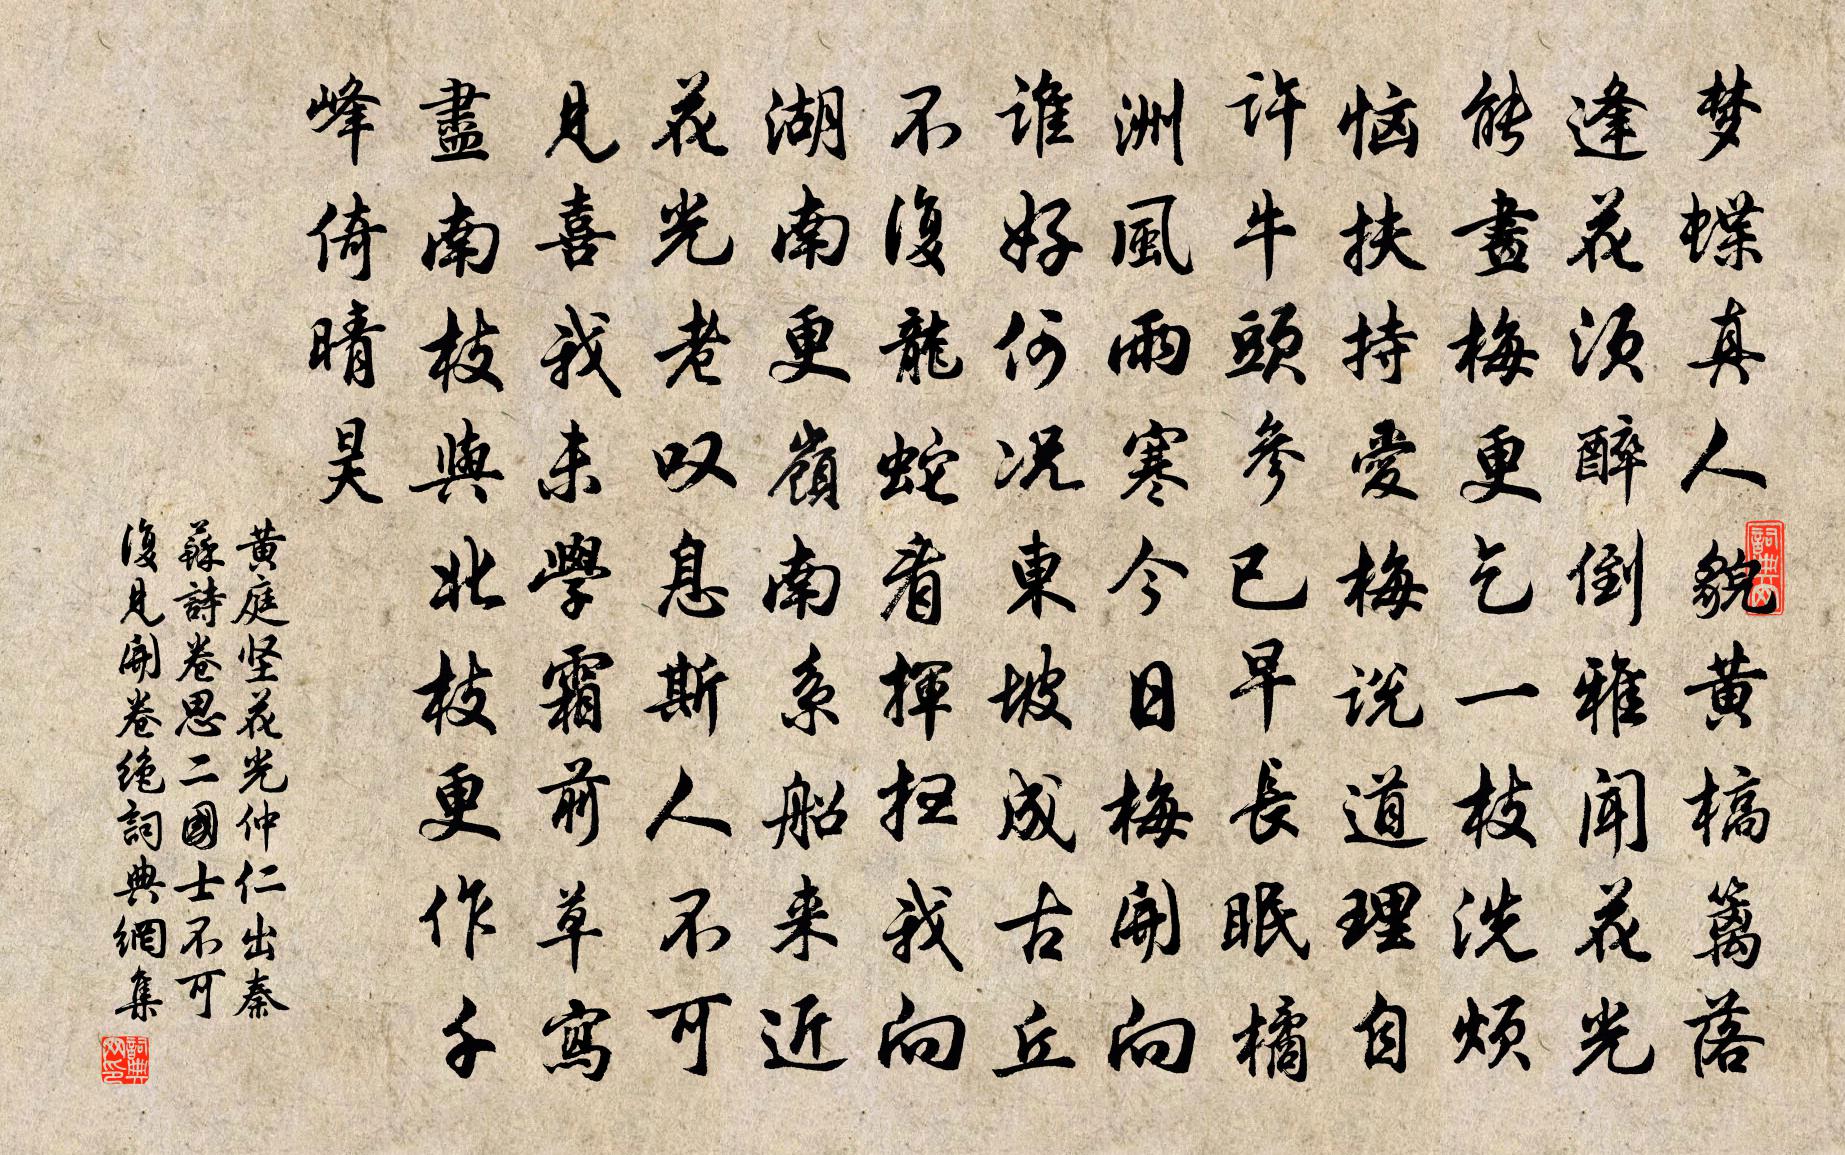 梦蝶真人貌黄槁篱落
逢花须醉倒雅闻花光
能畫梅更乞一枝洗烦
恼扶持愛梅说道理自
许牛頭參已早長眠橘
洲風雨寒今日梅開向
谁好何况東坡成古丘
不復龍蛇看揮扫我向
湖南更嶺南系船来近
花光老叹息斯人不可
見喜我未學霜前草寫
盡南枝與北枝更作千
峰倚晴昊
黄庭坚花光仲仁出秦
蘇詩卷思二國士不可
復見開卷绝詞典網集